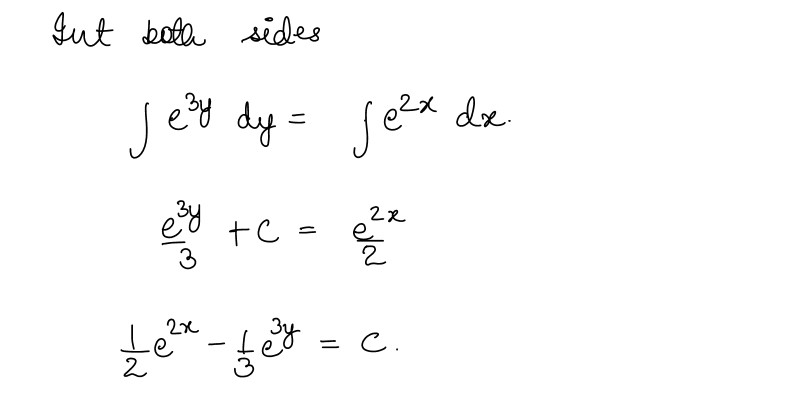 Int both sides
∫ e^{3y} dy = ∫ e^{2x} dx.
e^{3y}/3 + c = e^{2x}/2
1/2 e^{2x} - 1/3 e^{3y} = c.